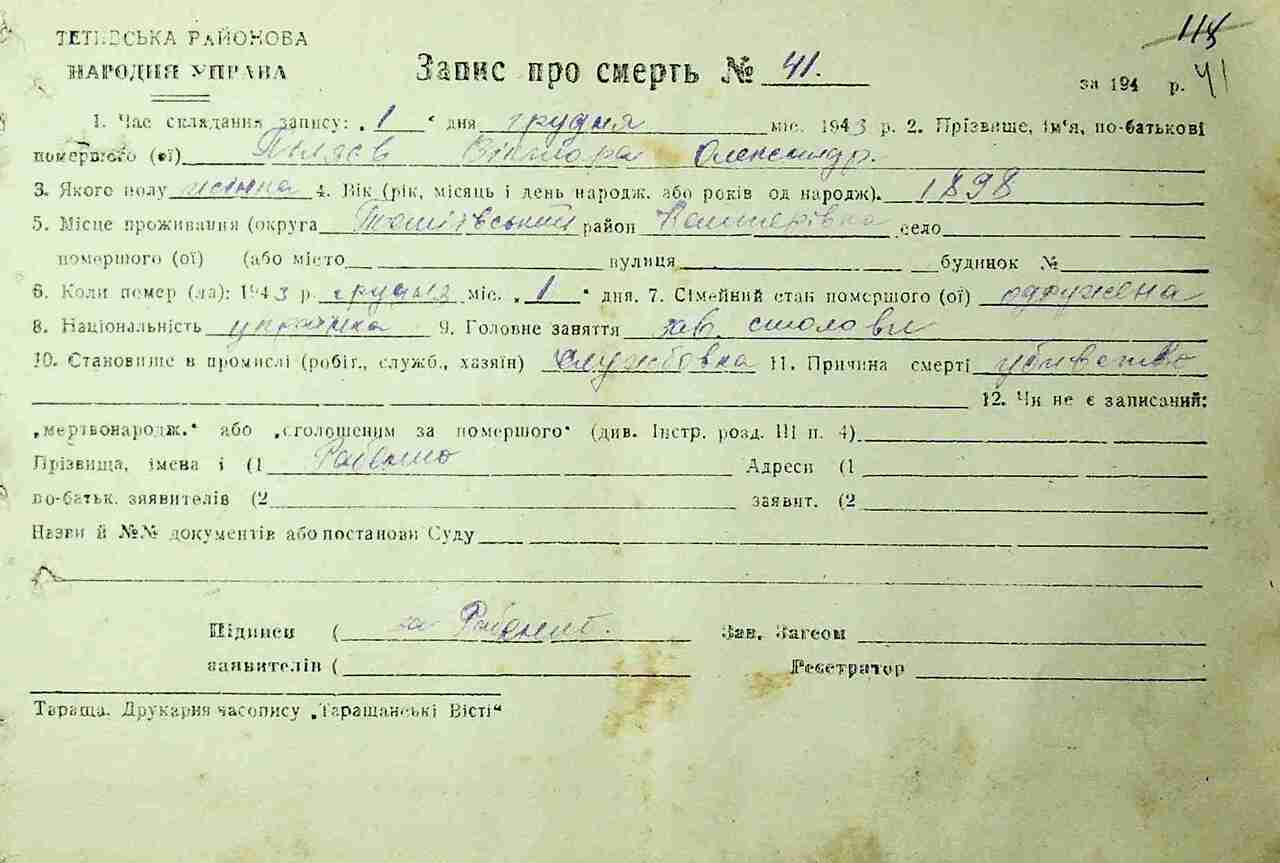 115
ТЕТІЇВСЬКА РАЙОНОВА
НАРОДНЯ УПРАВА
Запис про смерть № 41.
за 194 р. 41
1. Час складання запису: „1“ дня грудня міс. 1943 р. 2. Прізвище, ім'я, по-батькові
помершого (ої) Олександр.
3. Якого полу жіноча 4. Вік (рік, місяць і день народж. або років од народж). 1898
5. Місце проживання (округа район село
помершого (ої) (або місто вулиця будинок №
6. Коли помер (ла): 1943 р. грудня міс. „1“ дня. 7. Сімейний стан помершого (ої) одружена
8. Національність українка 9. Головне заняття зав. столови
10. Становище в промислі (робіт., служб., хазяїн) службовка 11. Причина смерті убивство
12. Чи не є записаний:
„мертвонародж.“ або „оголошеним за помершого“ (див. Інстр. розд. III п. 4)
Прізвища, імена і (1 Адреси (1
по-батьк. заявителів (2 заявит. (2
Назви й №№ документів або постанови Суду
Підписи ( за Зав. Загсом
заявителів ( Реєстратор
Тараща. Друкарня часопису „Таращанські Вісті“